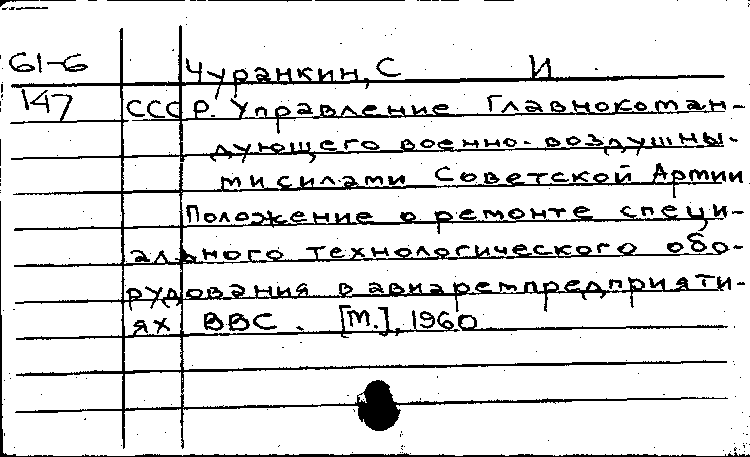 61-6 Чуранкин, С И
147 СССР. Управление Главнокоман-
дующего военно-воздушны-
ми силами Советской Армии
Положение о ремонте специ-
ального технологического обо-
рудования в авиаремпредприяти-
ях ВВС. [М.], 1960